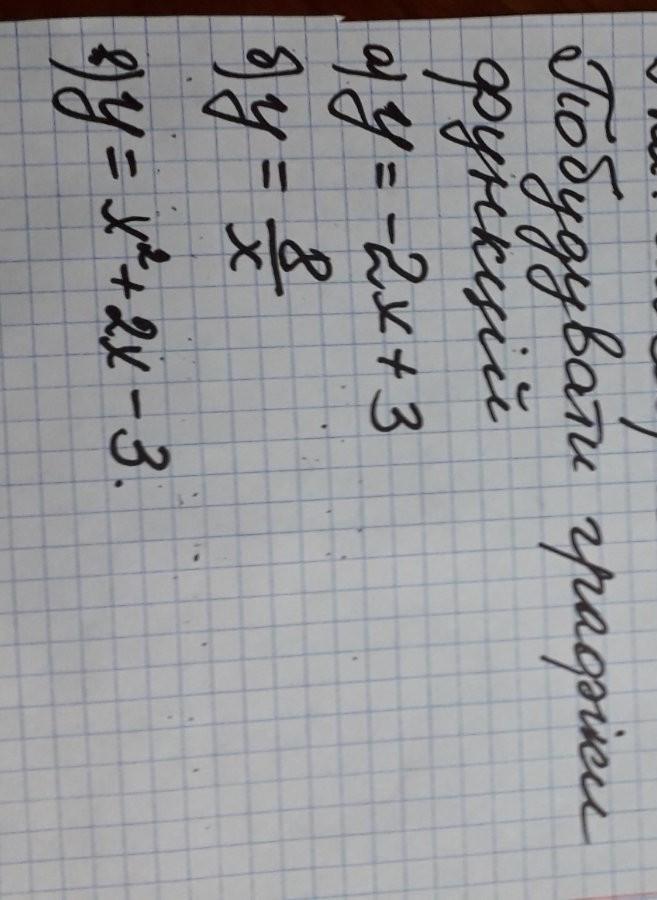 Побудувати графіки
функцій
а) y = -2x + 3
б) y = 8/x
в) y = x² + 2x - 3.